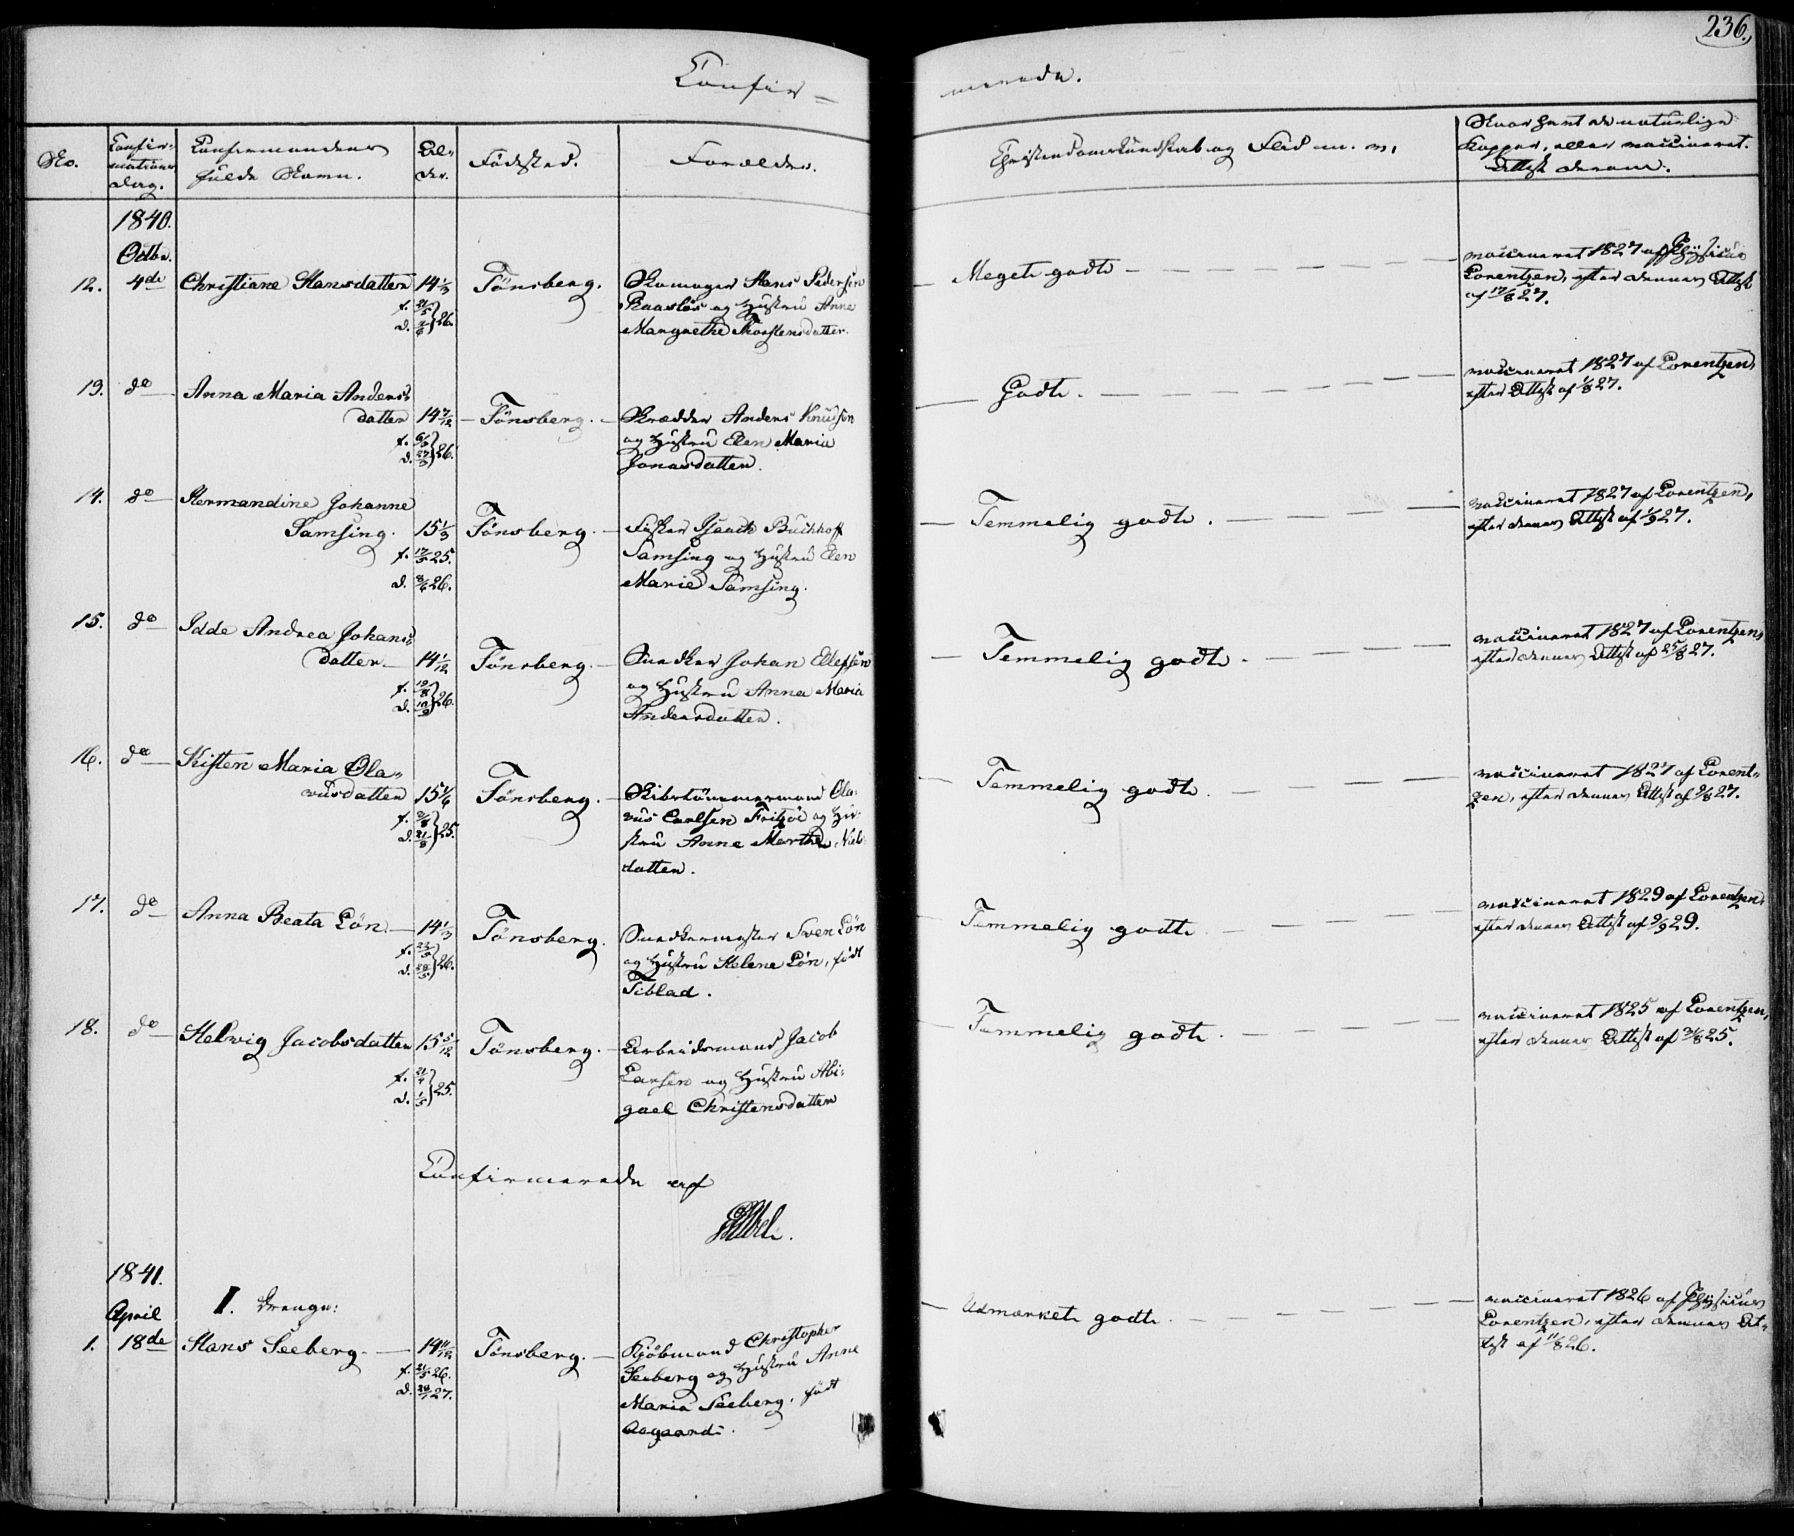 236.
Confir-
merede.
No.
Confir-
mations
Dag.
Confirmandens
fulde Navn.
Al-
der.
Fødested.
Forældre.
Christendomskundskab og Flid m. m.
Hvor havt de naturlige
Kopper, eller vaccineret.
Attest derom.
1840.
Octbr.
12. 4de Christiane Hansdatter 14 1/3 Tönsberg. Skomager Hans Pedersen
Raasløs og Hustru Anne
Margrethe Thorstensdatter.
f. d. 26.
Meget godt
vaccineret 1827 af Physicus
Lorentzen, efter dennes Attest
af 17/8 27.
13. do Anna Maria Anders-
datter 14 7/12 Tönsberg. Skrædder Anders Knudsen
og Hustru Elen Maria
Jonasdatter.
f. d. 26.
Godt.
vaccineret 1827 af Lorentzen,
efter Attest af 1/8 27.
14. do Hermandine Johanne
Samsing. 15 1/3 Tönsberg. Fisker Isach Buchhoff
Samsing og Hustru Elen
Marie Samsing.
f. 25.
d. 26.
Temmelig godt.
vaccineret 1827 af Lorentzen,
efter dennes Attest af 1/9 27.
15. do Idde Andrea Johans-
datter. 14 1/12 Tönsberg. Snedker Johan Ellefsen
og Hustru Anna Maria
Andersdatter.
f. d. 26.
Temmelig godt.
vaccineret 1827 af Lorentzen,
efter dennes Attest af 25/8 27.
16. do Kisten Maria Ola-
vusdatter 15 1/6 Tönsberg. Skibstömmermand Ola-
vus Carlsen Fritzöe og Hu-
stru Anne Marthe Niels-
datter.
f. d. 25.
Temmelig godt.
vaccineret 1827 af Lorent-
zen, efter dennes Attest af 9/8 27.
17. do Anna Beata Lön. 14 1/3 Tönsberg. Snedkermester Sven Lön
og Hustru Helene Lön, født
Tiblad.
f. d. 26.
Temmelig godt.
vaccineret 1829 af Lorentzen,
efter dennes Attest af 9/9 29.
18. do Helvig Jacobsdatter 15 5/12 Tönsberg. Arbeidsmand Jacob
Larsen og Hustru Abi-
gael Christensdatter
f. 21/4
d. 1/5 25.
Temmelig godt.
vaccineret 1825 af Lorentzen,
efter dennes Attest af 25.
Confirmerede af
1841.
April I. Drenge:
1. 18de Hans Seeberg. 14 11/12 Tönsberg. Kjøbmand Christopher
Seeberg og Hustru Anne
Maria Seeberg, født
Aagaard.
f. 26.
d. 27.
Udmærket godt.
vaccineret 1826 af Physicus
Lorentzen, efter dennes At-
test af 11/8 26.